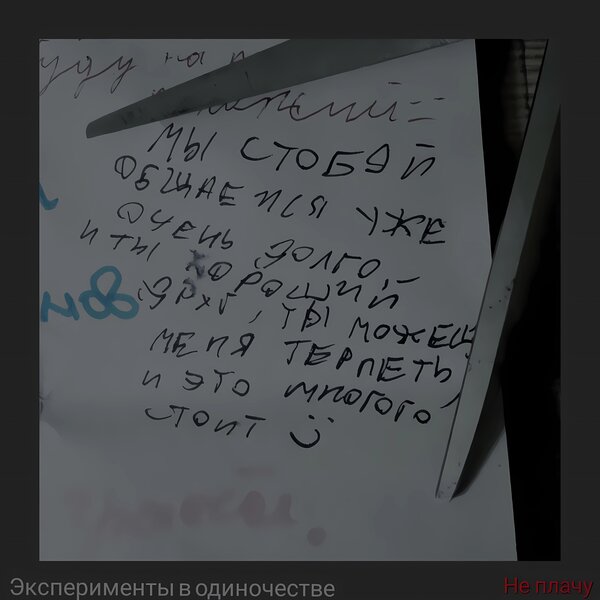 уду на
МЫ СТОБОЙ
ОБЩАЕМСЯ УЖЕ
ОЧЕНЬ ДОЛГО,
И ТЫ ХОРОШИЙ
ДРУГ, ТЫ МОЖЕШ
МЕНЯ ТЕРПЕТЬ,
И ЭТО МНОГОГО
СТОИТ :)
нов
Эксперименты в одиночестве
Не плачу